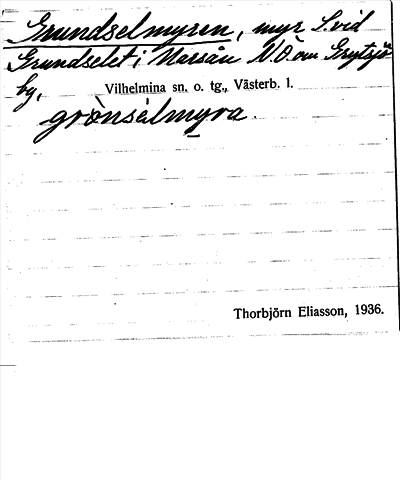 Grundselmyren, myr S. vid
Grundselet i Marsån N.O. om Grytsjö
by, Vilhelmina sn. o. tg., Västerb. l.
grònsèlmyra.
Thorbjörn Eliasson, 1936.